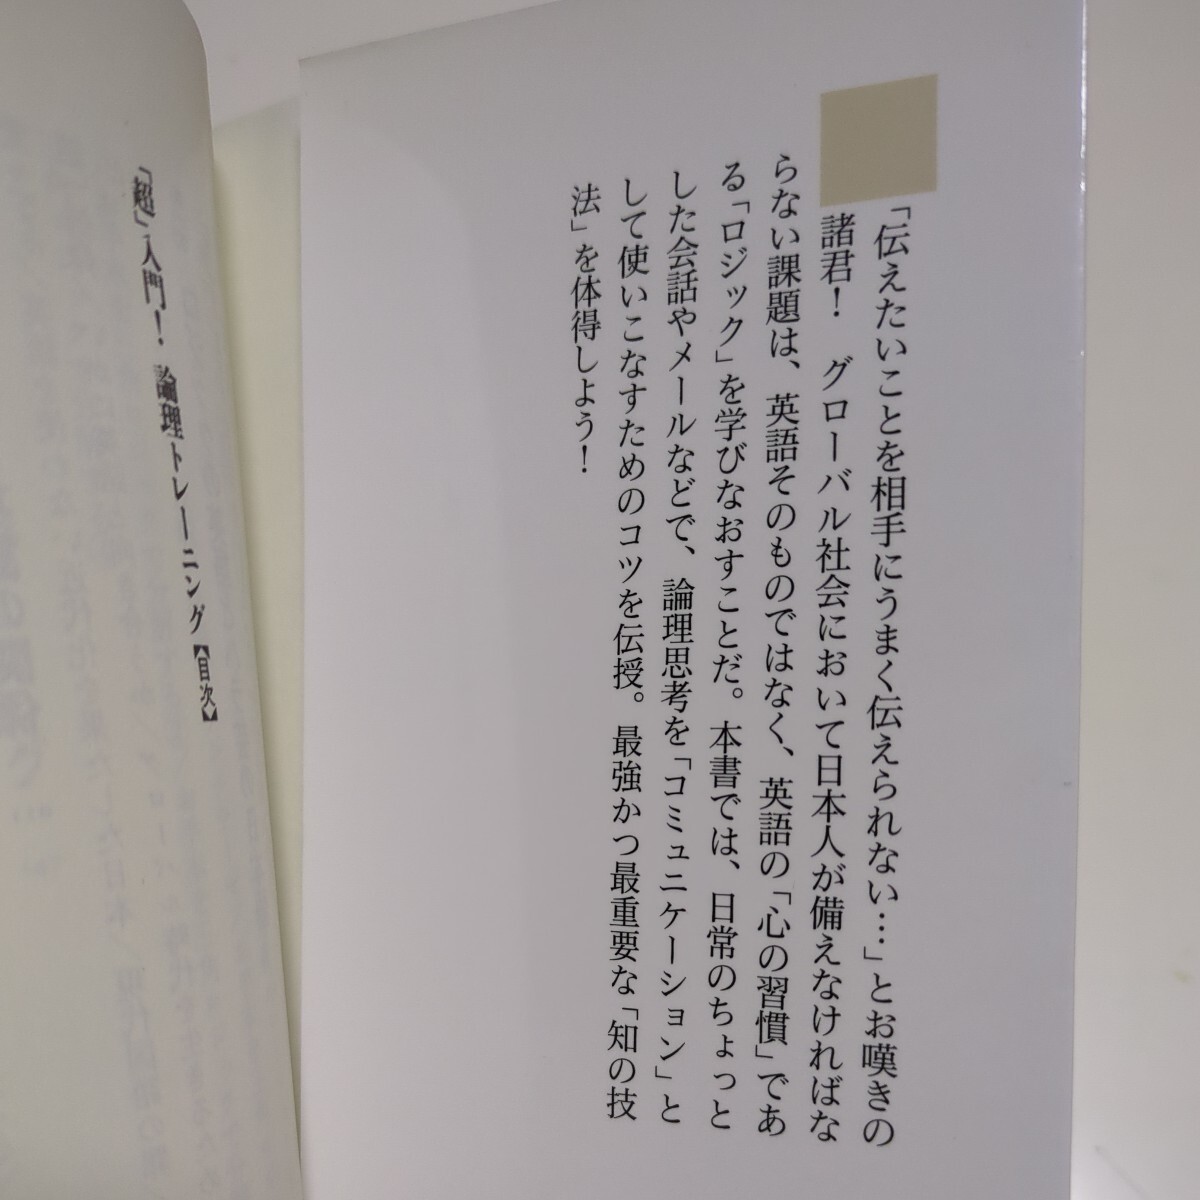 「伝えたいことを相手にうまく伝えられない…」とお嘆きの
諸君！　グローバル社会において日本人が備えなければな
らない課題は、英語そのものではなく、英語の「心の習慣」であ
る「ロジック」を学びなおすことだ。本書では、日常のちょっと
した会話やメールなどで、論理思考を「コミュニケーション」と
して使いこなすためのコツを伝授。最強かつ最重要な「知の技
法」を体得しよう！
「超」入門！　論理トレーニング【目次】